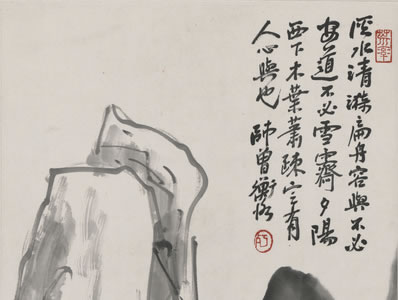 水清漪扁舟容與不必
安道不必雪霽夕陽
西下木葉蕭疎有
人心與也 師曾衡恪